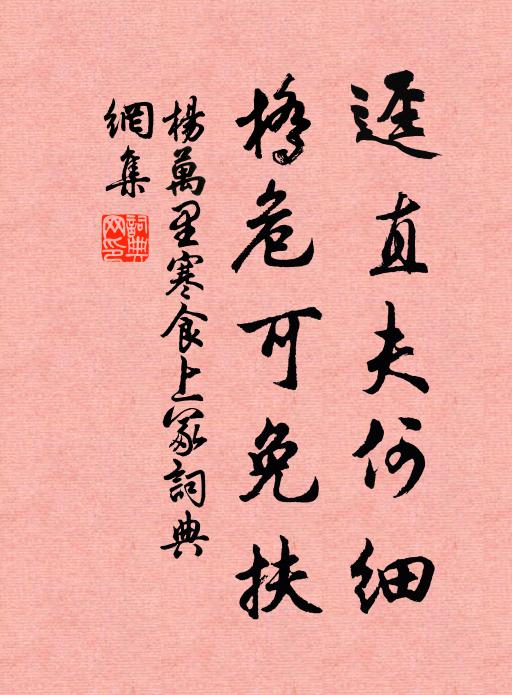 逕直夫何細
橋危可免扶
楊萬里寒食上冢詞典
網集
詞典
网印